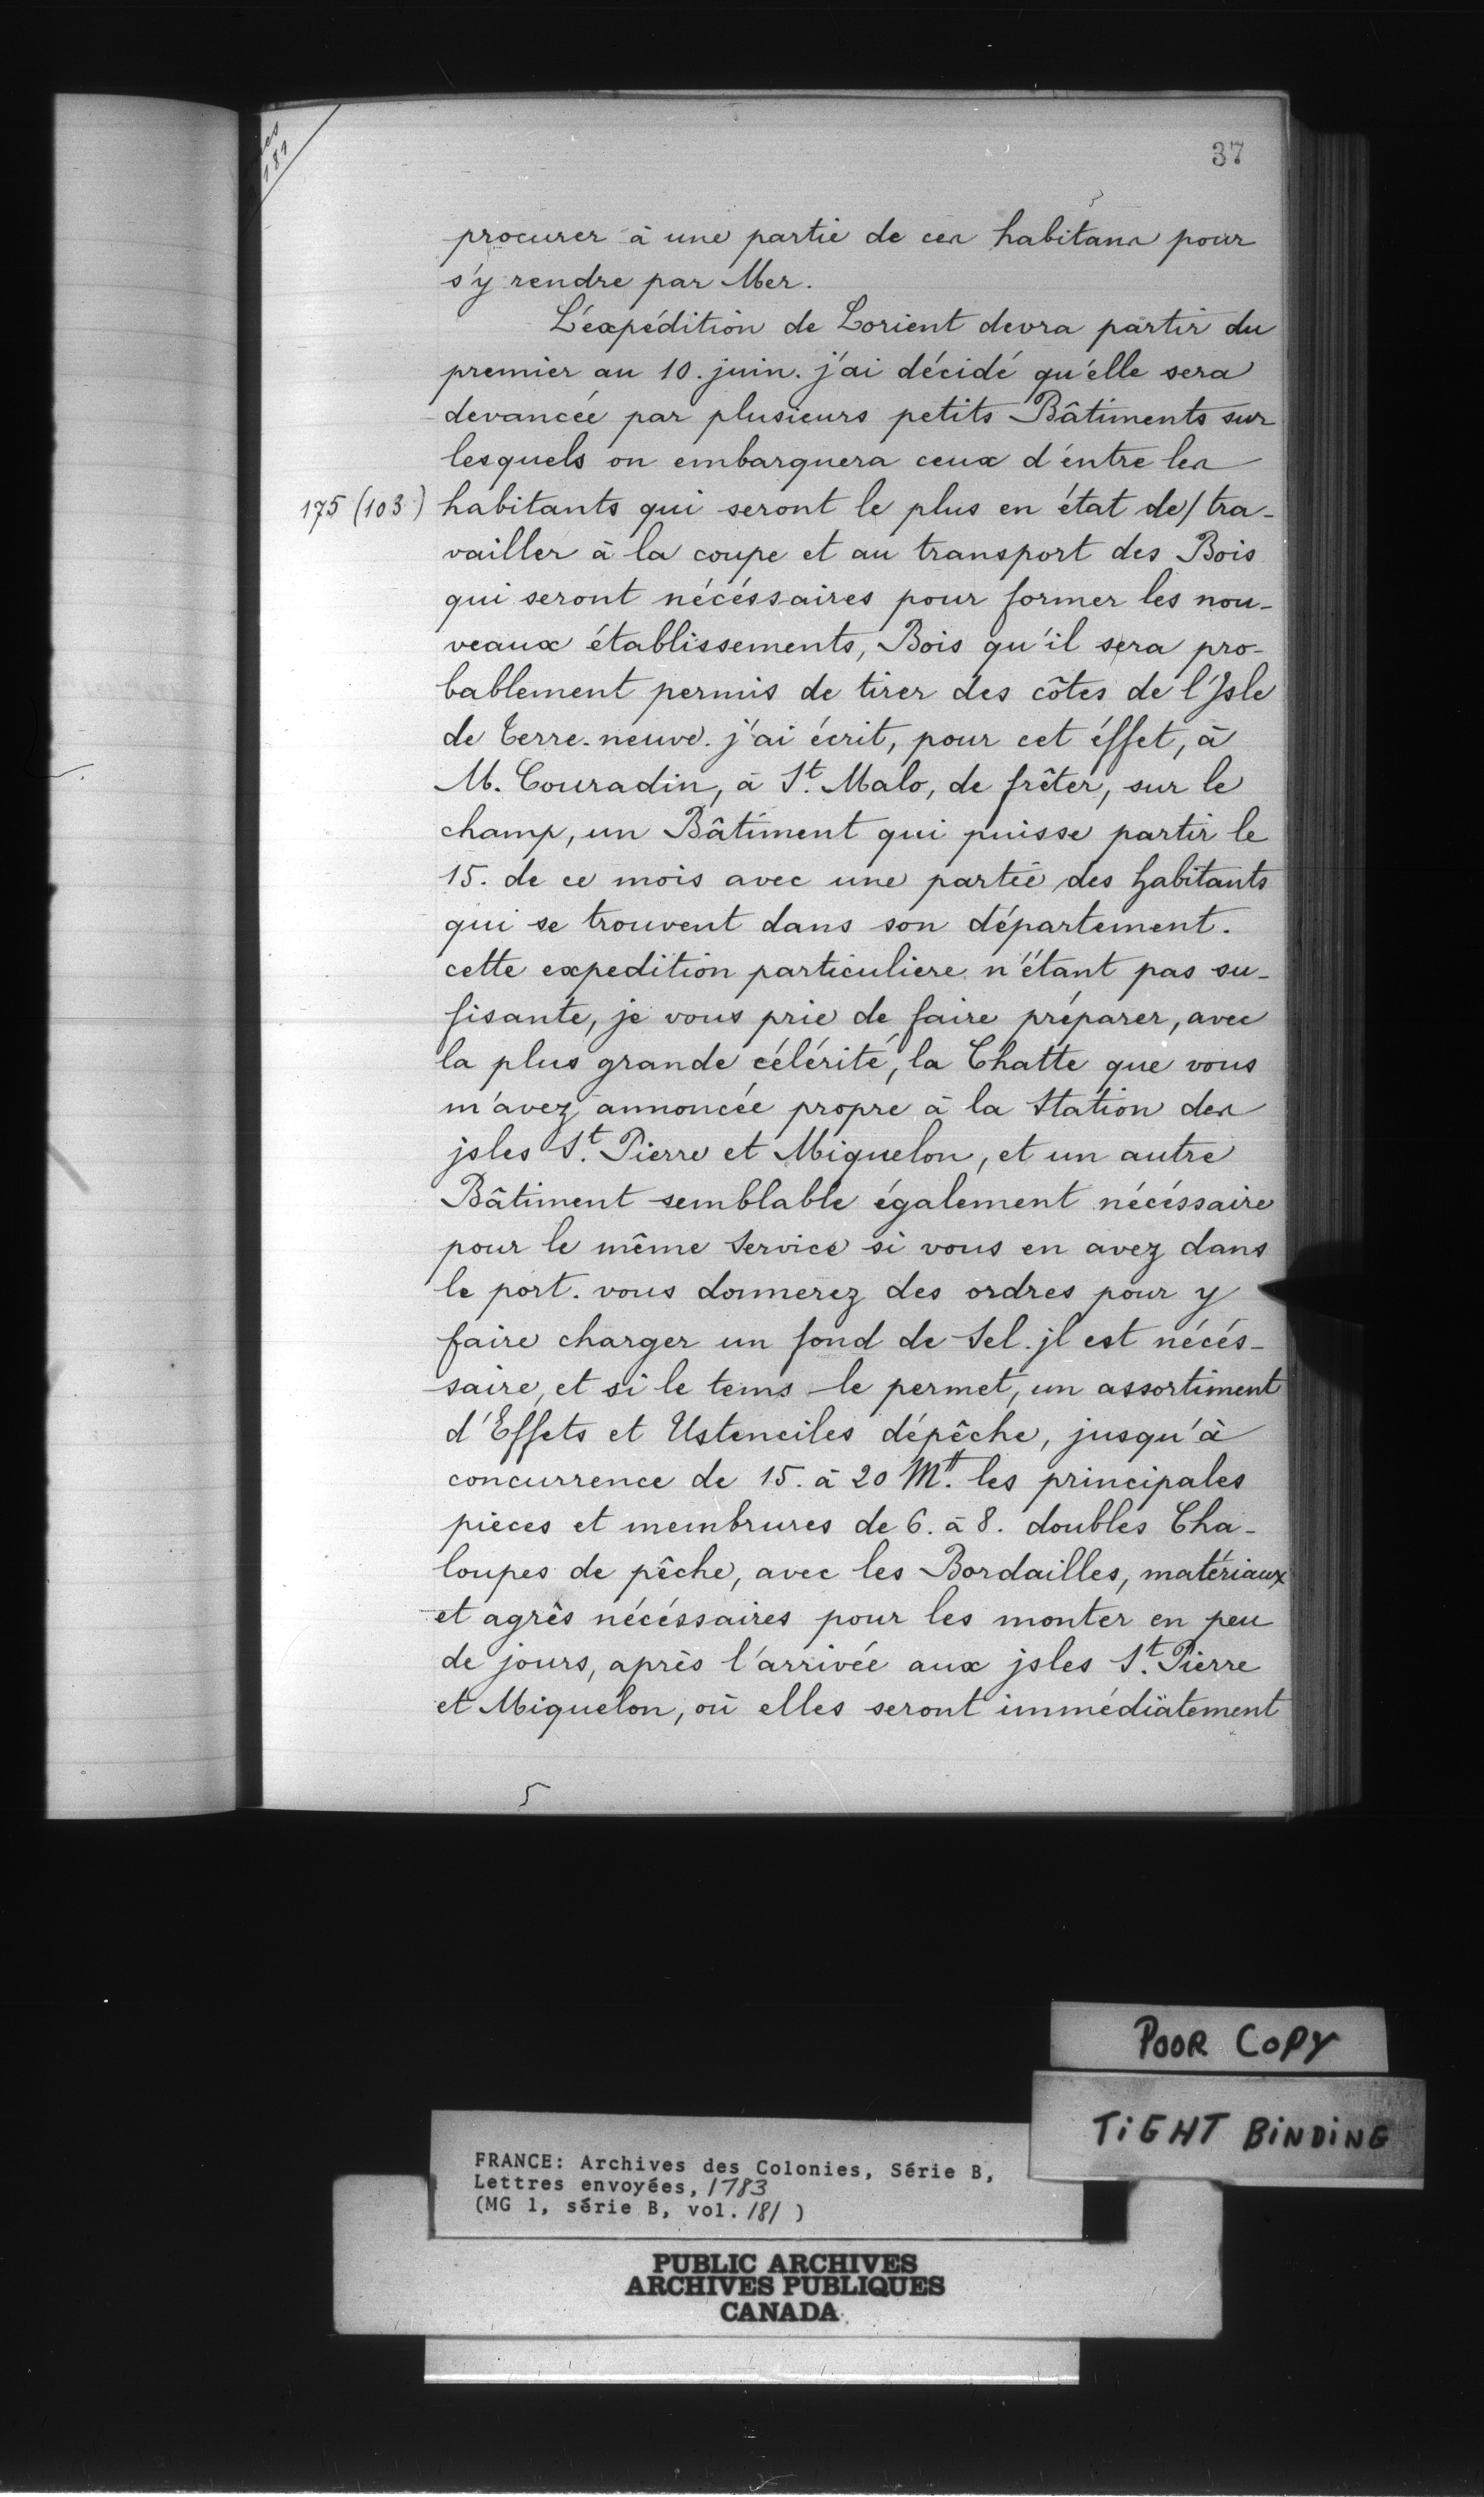 es
181
37
procurer à une partie de ces habitans pour
s'y rendre par Mer.
L'éxpédition de Lorient devra partir du
premier au 10. juin. j'ai décidé qu'élle sera
devancée par plusieurs petits Bâtiments sur
lesquels on embarquera ceux d'éntre les
175 (103) habitants qui seront le plus en état de/tra-
vailler à la coupe et au transport des Bois
qui seront nécéssaires pour former les nou-
veaux établissements, Bois qu'il sera pro-
bablement permis de tirer des côtes de l'Isle
de Terre-neuve. j'ai écrit, pour cet éffet, à
M. Couradin, à St. Malo, de frêter, sur le
champ, un Bâtiment qui puisse partir le
15. de ce mois avec une partie des habitants
qui se trouvent dans son département.
cette expedition particuliere n'étant pas su-
fisante, je vous prie de faire préparer, avec
la plus grande célérité, la Chatte que vous
m'avez annoncée propre à la Station des
jsles St. Pierre et Miquelon, et un autre
Bâtiment semblable également nécéssaire
pour le même Service si vous en avez dans
le port. vous donnerez des ordres pour y
faire charger un fond de Sel. jl est nécés-
saire, et si le tems le permet, un assortiment
d'Effets et Ustenciles dépêche, jusqu'à
concurrence de 15. à 20 Mtt. les principales
pièces et membrures de 6. à 8. doubles Cha-
loupes de pêche, avec les Bordailles, matériaux
et agrês nécéssaires pour les monter en peu
de jours, après l'arrivée aux jsles St. Pierre
et Miquelon, où elles seront immédiâtement
5
POOR COPY
TIGHT BINDING
FRANCE: Archives des Colonies, Série B,
Lettres envoyées, 1783
(MG 1, série B, vol. 181 )
PUBLIC ARCHIVES
ARCHIVES PUBLIQUES
CANADA